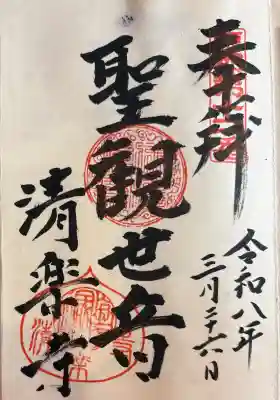 奉拝
令和八年
三月二十六日
聖観世音
清楽寺